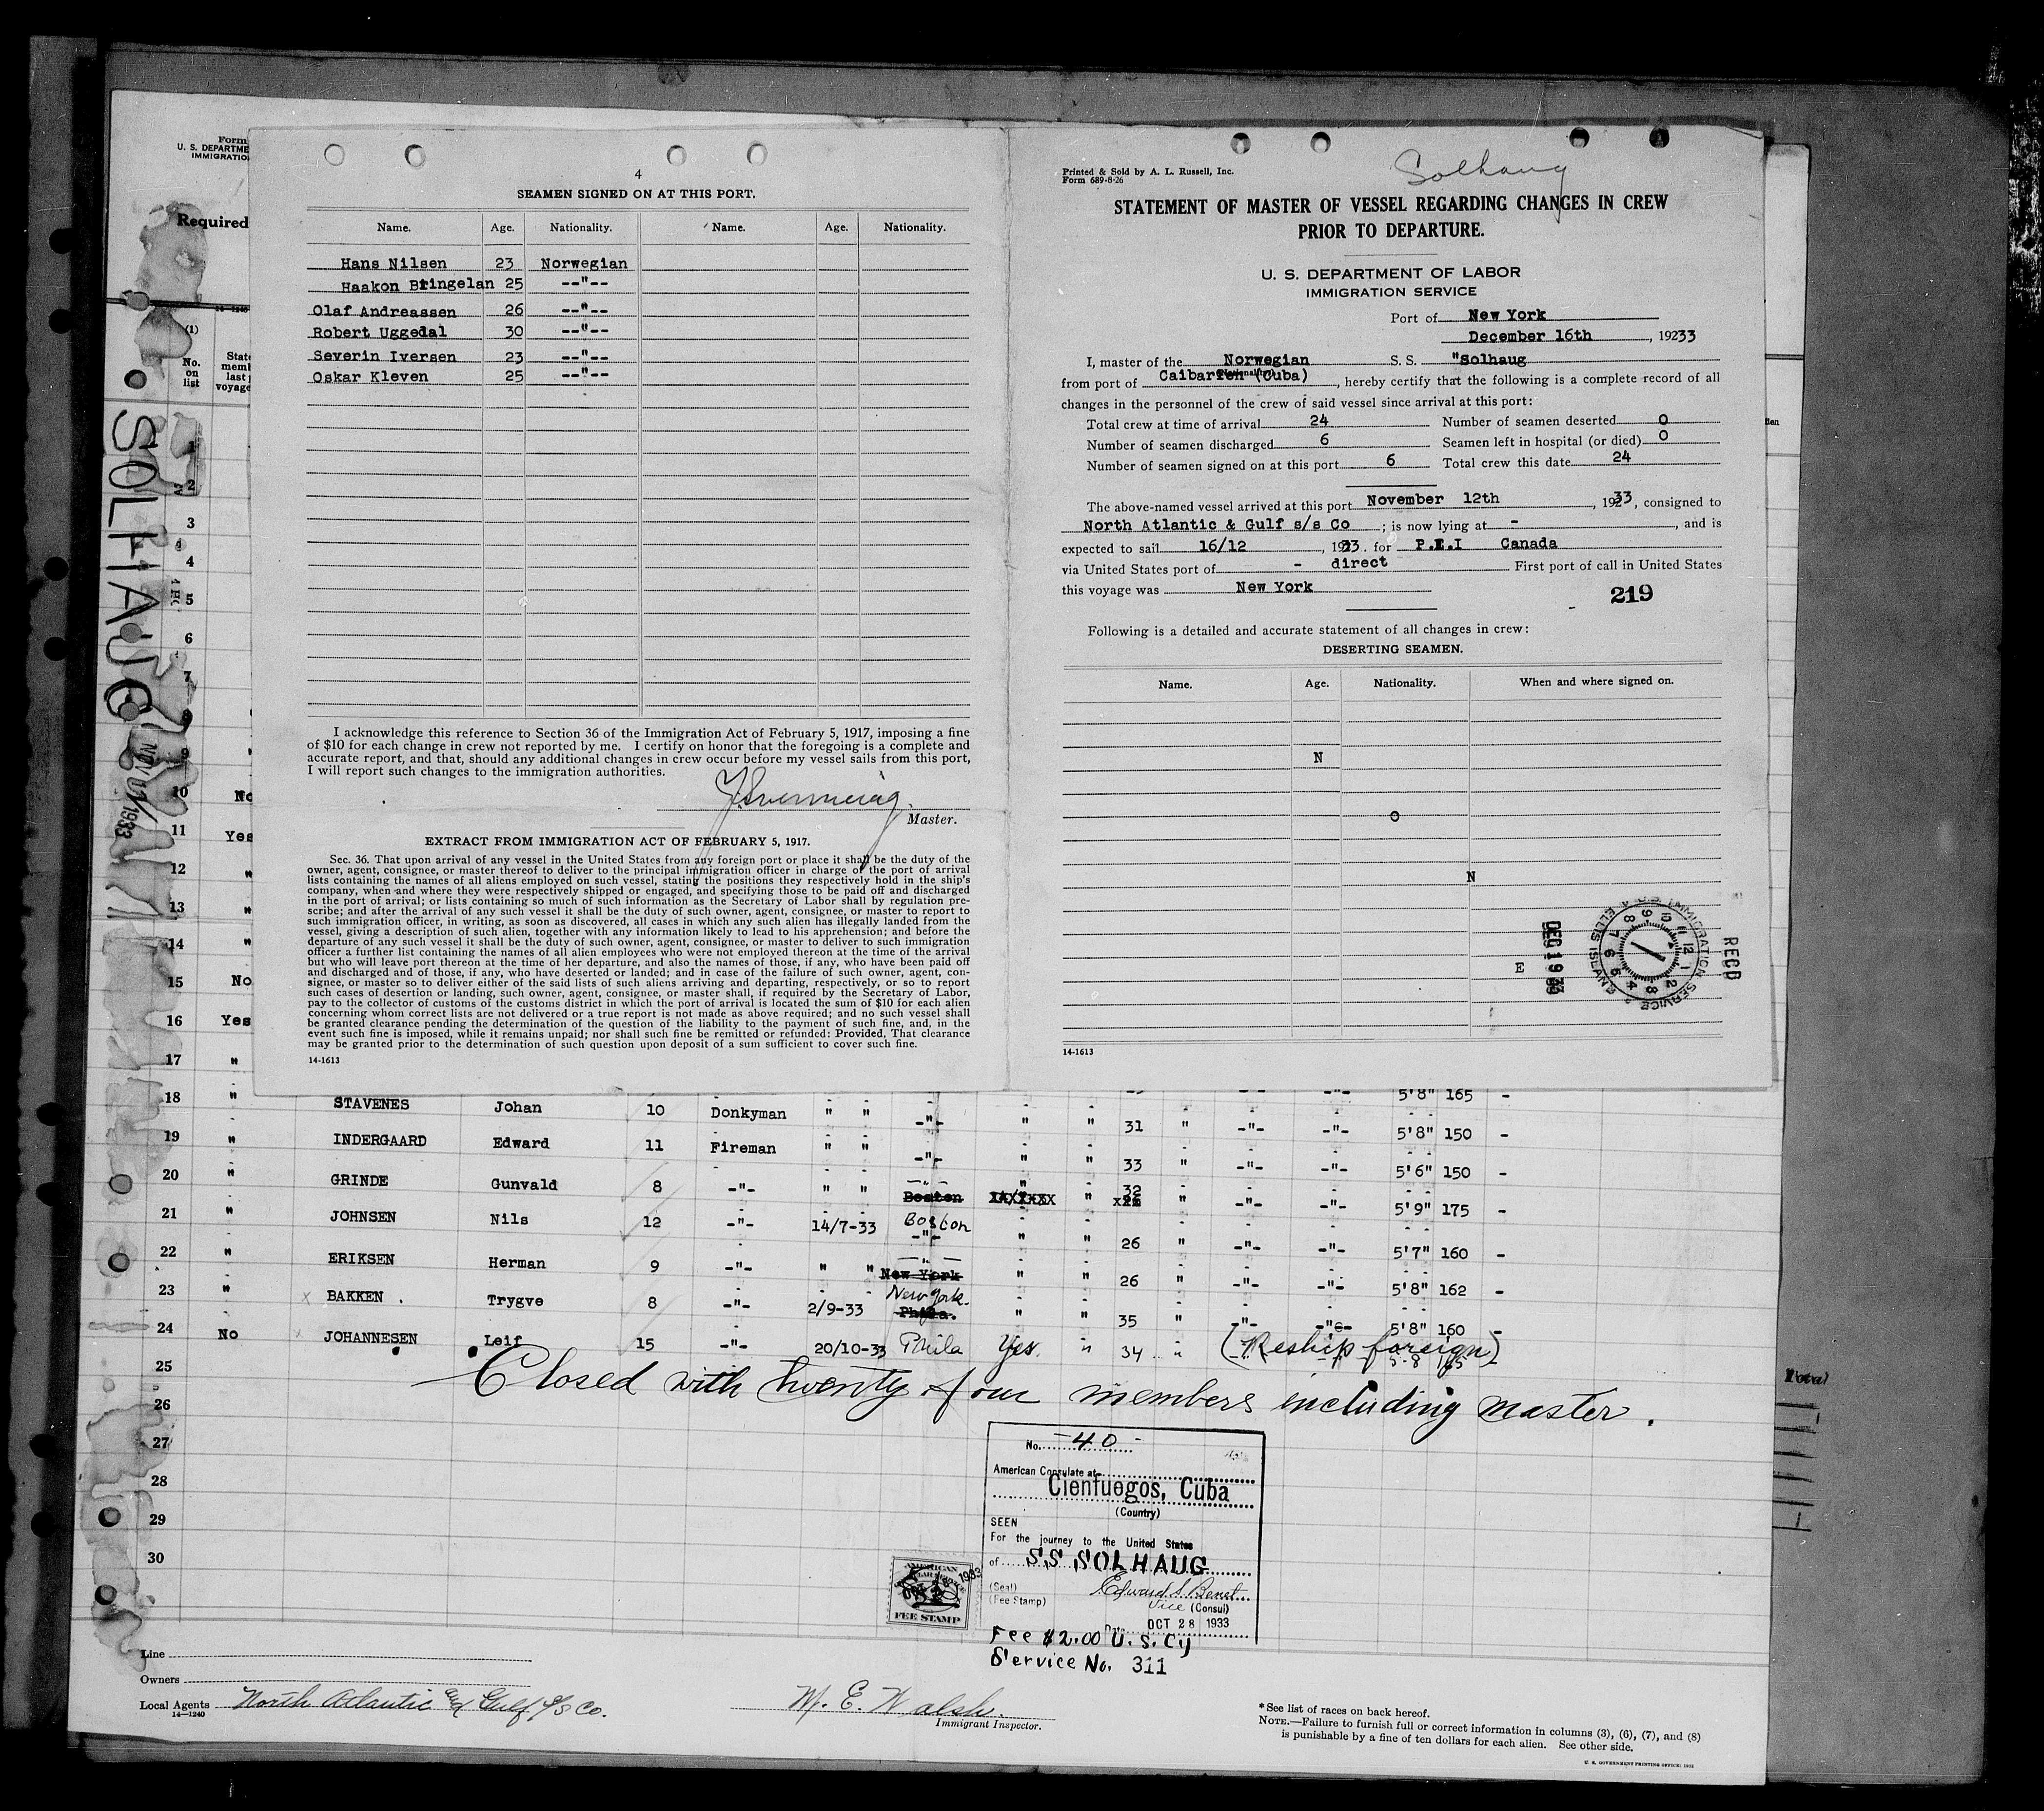 Form
U. S. DEPARTME
IMMIGRATIO
Required
14—1240
(1)
No.
on
list
State
memb
last
voyage
SOLHAUG
NOV 1933
4
SEAMEN SIGNED ON AT THIS PORT.
Name. Age. Nationality. Name. Age. Nationality.
Hans Nilsen 23 Norwegian
Haakon Bringelan 25 --"--
Olaf Andreassen 26 --"--
Robert Uggedal 30 --"--
Severin Iversen 23 --"--
Oskar Kleven 25 --"--
I acknowledge this reference to Section 36 of the Immigration Act of February 5, 1917, imposing a fine
of $10 for each change in crew not reported by me. I certify on honor that the foregoing is a complete and
accurate report, and that, should any additional changes in crew occur before my vessel sails from this port,
I will report such changes to the immigration authorities.
Master.
EXTRACT FROM IMMIGRATION ACT OF FEBRUARY 5, 1917.
Sec. 36. That upon arrival of any vessel in the United States from any foreign port or place it shall be the duty of the
owner, agent, consignee, or master thereof to deliver to the principal immigration officer in charge of the port of arrival
lists containing the names of all aliens employed on such vessel, stating the positions they respectively hold in the ship's
company, when and where they were respectively shipped or engaged, and specifying those to be paid off and discharged
in the port of arrival; or lists containing so much of such information as the Secretary of Labor shall by regulation pre-
scribe; and after the arrival of any such vessel it shall be the duty of such owner, agent, consignee, or master to report to
such immigration officer, in writing, as soon as discovered, all cases in which any such alien has illegally landed from the
vessel, giving a description of such alien, together with any information likely to lead to his apprehension; and before the
departure of any such vessel it shall be the duty of such owner, agent, consignee, or master to deliver to such immigration
officer a further list containing the names of all alien employees who were not employed thereon at the time of the arrival
but who will leave port thereon at the time of her departure, and also the names of those, if any, who have been paid off
and discharged and of those, if any, who have deserted or landed; and in case of the failure of such owner, agent, con-
signee, or master so to deliver either of the said lists of such aliens arriving and departing, respectively, or so to report
such cases of desertion or landing, such owner, agent, consignee, or master shall, if required by the Secretary of Labor,
pay to the collector of customs of the customs district in which the port of arrival is located the sum of $10 for each alien
concerning whom correct lists are not delivered or a true report is not made as above required; and no such vessel shall
be granted clearance pending the determination of the question of the liability to the payment of such fine, and, in the
event such fine is imposed, while it remains unpaid; nor shall such fine be remitted or refunded: Provided, That clearance
may be granted prior to the determination of such question upon deposit of a sum sufficient to cover such fine.
14-1613
Printed & Sold by A. L. Russell, Inc.
Form 689-8-26
Solhaug
STATEMENT OF MASTER OF VESSEL REGARDING CHANGES IN CREW
PRIOR TO DEPARTURE.
U. S. DEPARTMENT OF LABOR
IMMIGRATION SERVICE
Port of New York
December 16th, 19233
I, master of the Norwegian S. S. "Solhaug
(Nationality)
from port of Caibarien (Cuba), hereby certify that the following is a complete record of all
changes in the personnel of the crew of said vessel since arrival at this port:
Total crew at time of arrival 24 Number of seamen deserted 0
Number of seamen discharged 6 Seamen left in hospital (or died) 0
Number of seamen signed on at this port 6 Total crew this date 24
The above-named vessel arrived at this port November 12th, 1933, consigned to
North Atlantic & Gulf s/s Co; is now lying at -, and is
expected to sail 16/12, 1933. for P.E.I Canada
via United States port of - direct First port of call in United States
this voyage was New York
219
Following is a detailed and accurate statement of all changes in crew:
DESERTING SEAMEN.
Name. Age. Nationality. When and where signed on.
N
O
N
E
RECD
U.S. IMMIGRATION SERVICE ELLIS ISLAND
12 1 2 3 4 5 6 7 8 9 10 11
14-1613
1
2
3
4
5
6
7
8
9 "
10 No
11 Yes
12 "
13 "
14 "
15 No
16 Yes
17 "
5'8" 165 -
18 " STAVENES Johan 10 Donkyman " " -"- " " 31 " -"- -"- 5'8" 150 -
19 " INDERGAARD Edward 11 Fireman " " -"- " " 33 " -"- -"- 5'6" 150 -
20 " GRINDE Gunvald 8 -"- " " -"- " " 32 " -"- -"- 5'9" 175 -
Boston
21 " JOHNSEN Nils 12 -"- 14/7-33 Boston -"- " " 26 " -"- -"- 5'7" 160 -
22 " ERIKSEN Herman 9 -"- " " -"- " " 26 " -"- -"- 5'8" 162 -
New York
23 " BAKKEN . Trygve 8 -"- 2/9-33 New York. " " 35 " -"- -"- 5'8" 160 -
Phila.
24 No JOHANNESEN Leif 15 -"- 20/10-33 Phila Yes " 34 " (Reship foreign) 5-8 165
25
Closed with twenty four members including master.
26
27
28
29
30
No. -40-
American Consulate at
Cienfuegos, Cuba
(Country)
SEEN
For the journey to the United States
of SS SOLHAUG
(Seal) Edward S. Benet
(Fee Stamp) Vice (Consul)
Date OCT 28 1933
Fee $2.00 U.S. Cy
Service No. 311
AMERICAN
FEE STAMP
Total
Line
Owners
Local Agents North Atlantic and Gulf S/S Co.
14—1240
M. E. Walsh.
Immigrant Inspector.
*See list of races on back hereof.
NOTE.—Failure to furnish full or correct information in columns (3), (6), (7), and (8)
is punishable by a fine of ten dollars for each alien. See other side.
U. S. GOVERNMENT PRINTING OFFICE: 1932